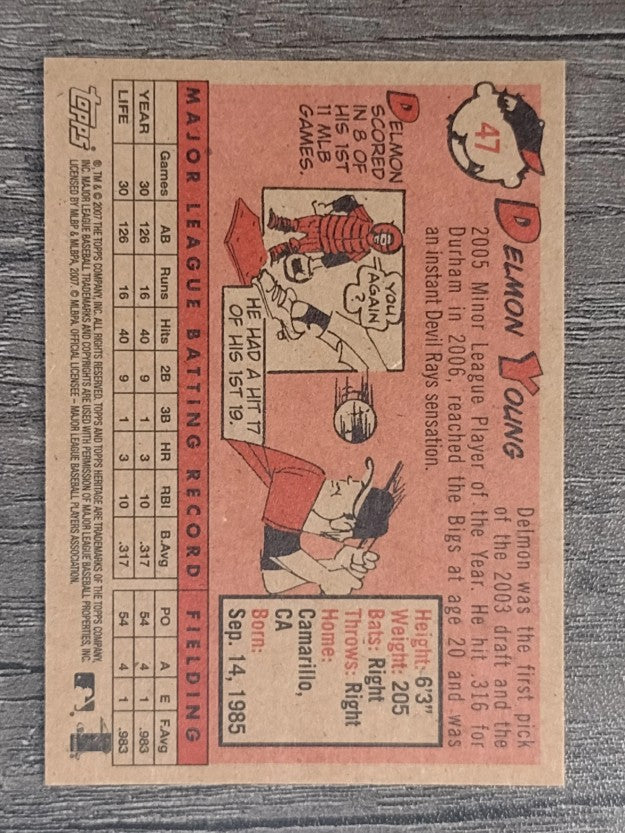 47
DELMON YOUNG
Delmon was the first pick
of the 2003 draft and the
2005 Minor League Player of the Year. He hit .316 for
Durham in 2006, reached the Bigs at age 20 and was
an instant Devil Rays sensation.
DELMON
SCORED
IN 8 OF
HIS 1ST
11 MLB
GAMES.
YOU
AGAIN
?
HE HAD A HIT 17
OF HIS 1ST 19.
Height: 6'3"
Weight: 205
Bats: Right
Throws: Right
Home:
Camarillo,
CA
Born:
Sep. 14, 1985
MAJOR LEAGUE BATTING RECORD FIELDING
Games AB Runs Hits 2B 3B HR RBI B.Avg PO A E F.Avg
YEAR 30 126 16 40 9 1 3 10 .317 54 4 1 .983
LIFE 30 126 16 40 9 1 3 10 .317 54 4 1 .983
topps
® TM & © 2007 THE TOPPS COMPANY, INC. ALL RIGHTS RESERVED. TOPPS AND TOPPS HERITAGE ARE TRADEMARKS OF THE TOPPS COMPANY,
INC. MAJOR LEAGUE BASEBALL TRADEMARKS AND COPYRIGHTS ARE USED WITH PERMISSION OF MAJOR LEAGUE BASEBALL PROPERTIES, INC.
LICENSED BY MLBP & MLBPA, 2007. © MLBPA. OFFICIAL LICENSEE – MAJOR LEAGUE BASEBALL PLAYERS ASSOCIATION.